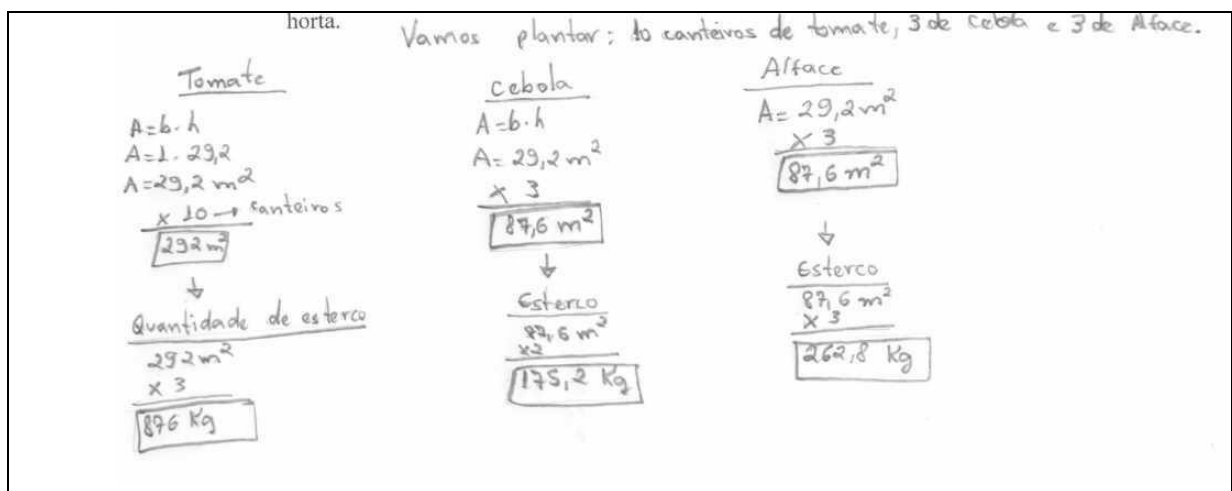 horta.
Vamos plantar: 10 canteiros de tomate, 3 de cebola e 3 de Alface.
Tomate
A=b.h
A=1.29,2
A=29,2 m²
x 10 → canteiros
292 m²
↓
Quantidade de esterco
292 m²
x 3
876 Kg
Cebola
A=b.h
A= 29,2 m²
x 3
87,6 m²
↓
Esterco
87,6 m²
x2
175,2 Kg
Alface
A= 29,2 m²
x 3
87,6 m²
↓
Esterco
87,6 m²
x 3
262,8 Kg